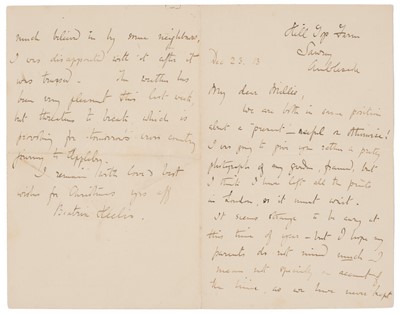 Hill Top Farm
Sawrey
Ambleside
Dec 23. 13
My dear Millie,
We are both in same position
about a "present" – useful or otherwise!
I was going to give you rather a pretty
photograph of my garden, framed, but
I think I have left all the prints
in London, so it must wait.
It seems strange to be away at
this time of year – but I hope my
parents do not mind much – I
mean not specially on account of
the time, as we have never kept
much believed in by some neighbours,
I was disappointed with it after it
was trussed. The weather has
been very pleasant this last week
but threatens to break which is
provoking for tomorrow's cross country
journey to Appleby.
I remain with love & best
wishes for Christmas yrs aff
Beatrix Heelis.